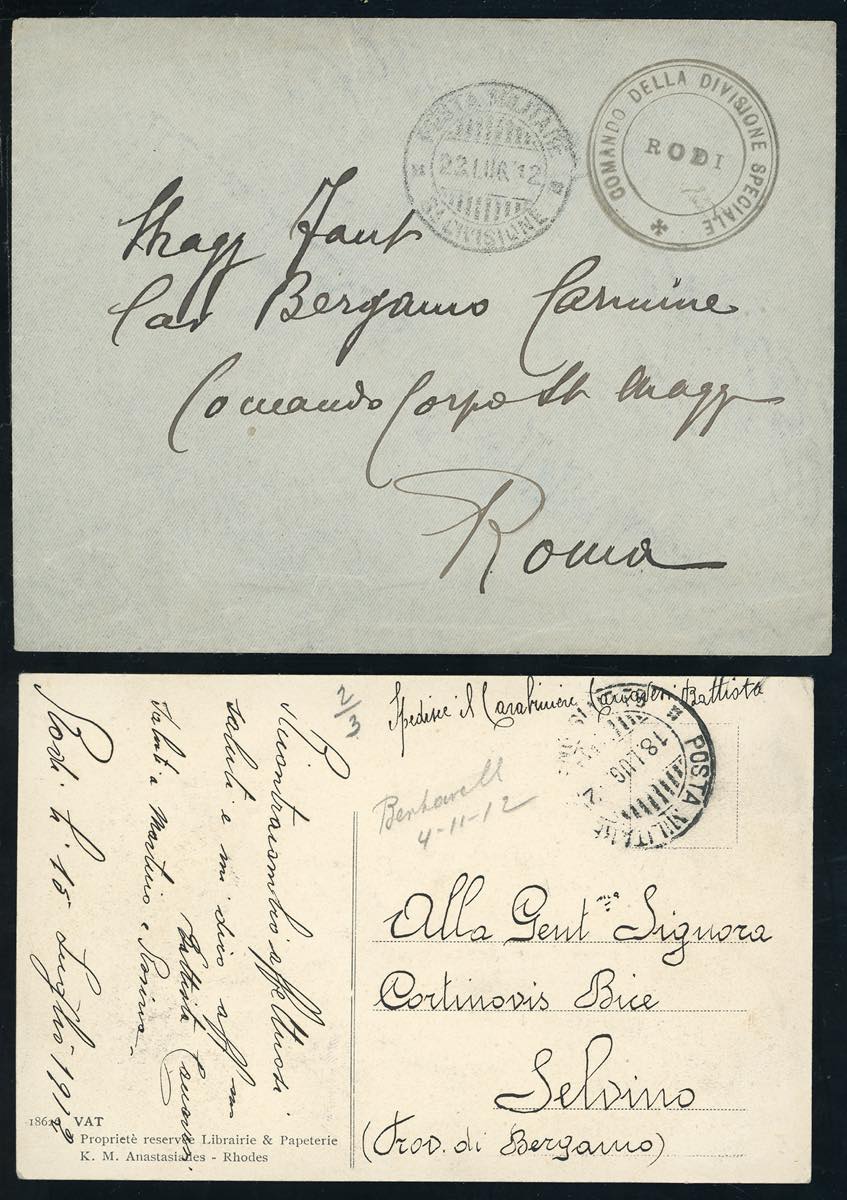 POSTA MILITARE
22 LUG 12
DIVISIONE
COMANDO DELLA DIVISIONE SPECIALE
RODI
Magg Fant
Cav Bergamo Carmine
Comando Corpo St Magg
Roma
Spedisce il Carabiniere Canavesi Battista
POSTA MILITARE
18 LUG 12
2/3
4-11-12
Alla Gent Signora
Cortinovis Bice
Selvino
(Prov. di Bergamo)
Ricontracambio affettuosi
saluti e mi dico aff
Battista
Saluti a Martino e
Rodi li 15 Luglio 1912
VAT
Proprietè reservée Librairie & Papeterie
K. M. Anastasiades - Rhodes